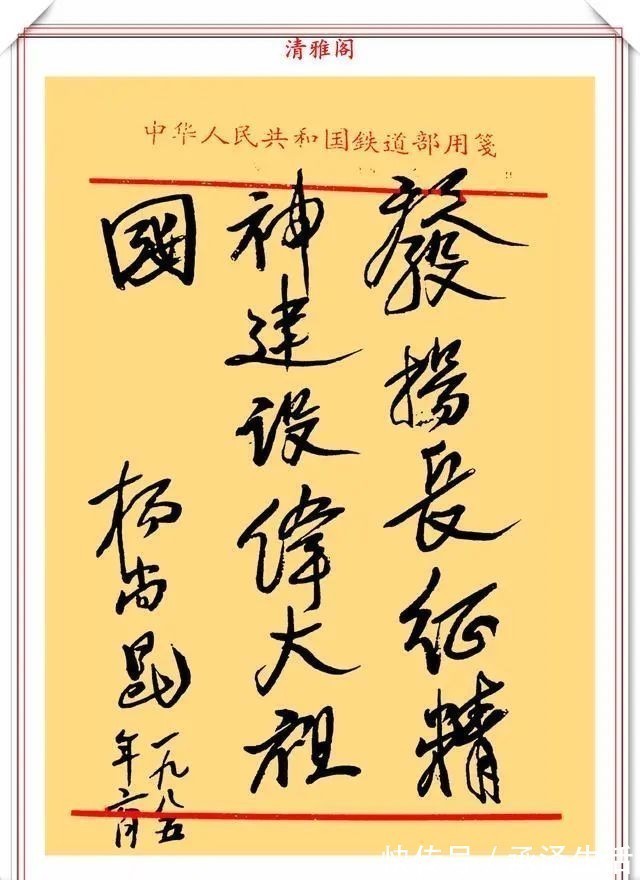 清雅阁
中华人民共和国鉄道部用笺
發揚長征精
神建設偉大祖
國
杨尚昆
一九八五
年六月
快传号/承泽生活